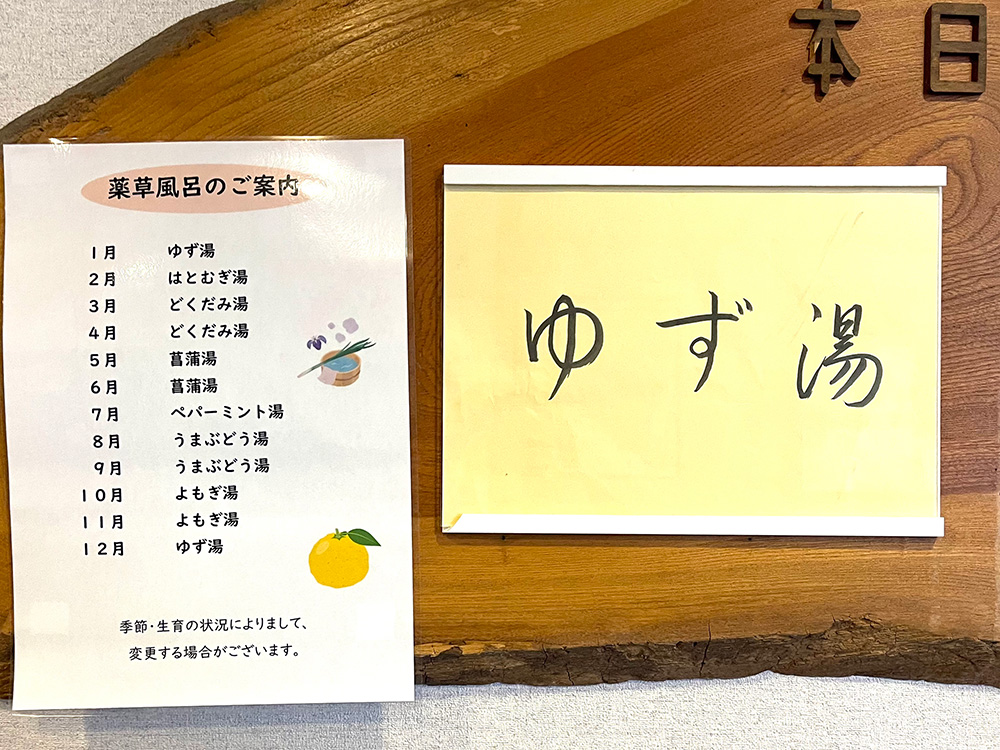 本日
薬草風呂のご案内
1月 ゆず湯
2月 はとむぎ湯
3月 どくだみ湯
4月 どくだみ湯
5月 菖蒲湯
6月 菖蒲湯
7月 ペパーミント湯
8月 うまぶどう湯
9月 うまぶどう湯
10月 よもぎ湯
11月 よもぎ湯
12月 ゆず湯
季節・生育の状況によりまして、
変更する場合がございます。
ゆず湯